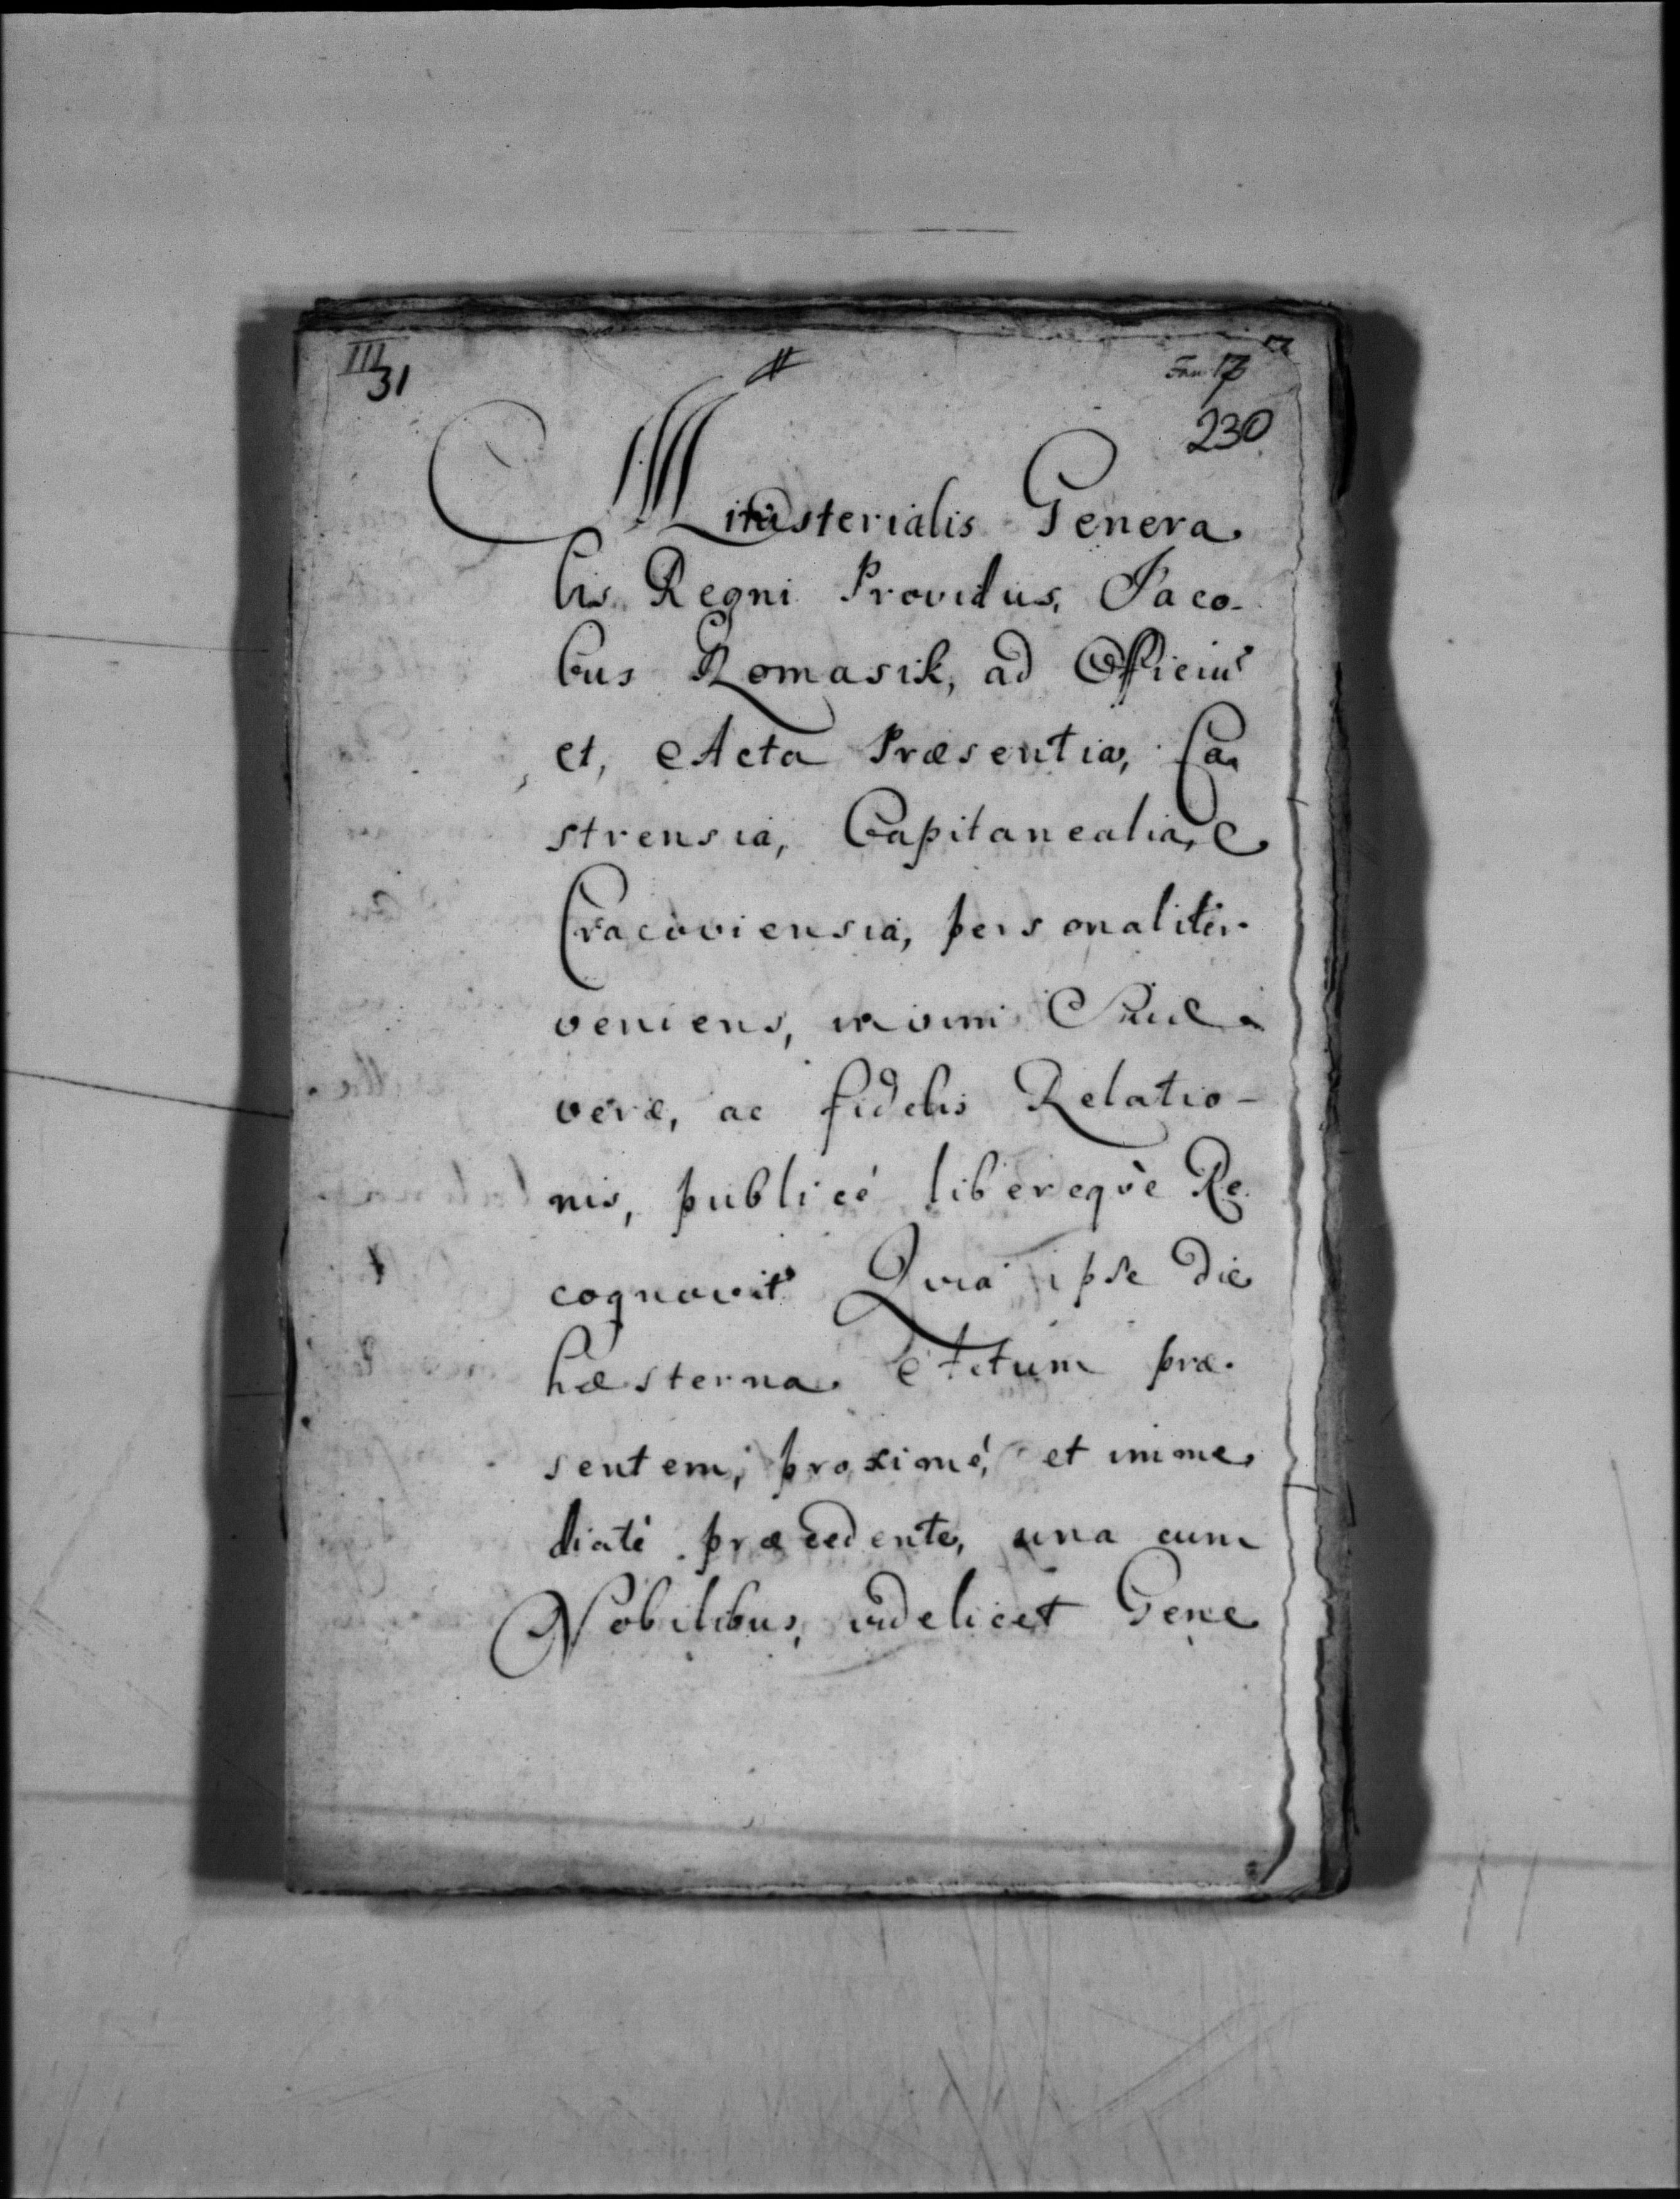 III
31
17
230
Ministerialis Genera
lis Regni Providus, Jaco-
bus Romasik, ad Officiu
et, Acta Præsentia, Ca
strensia, Capitanealia,
Cracoviensia, personaliter
veniens, in vim Suæ
veræ, ac fidelis Relatio-
nis, publicé liberequè Re
cognovit Quia ipse die
hæsterna Actum præ
sentem, proximé, et imme
diaté præcedente, una cum
Nobilibus, videlicet Gene